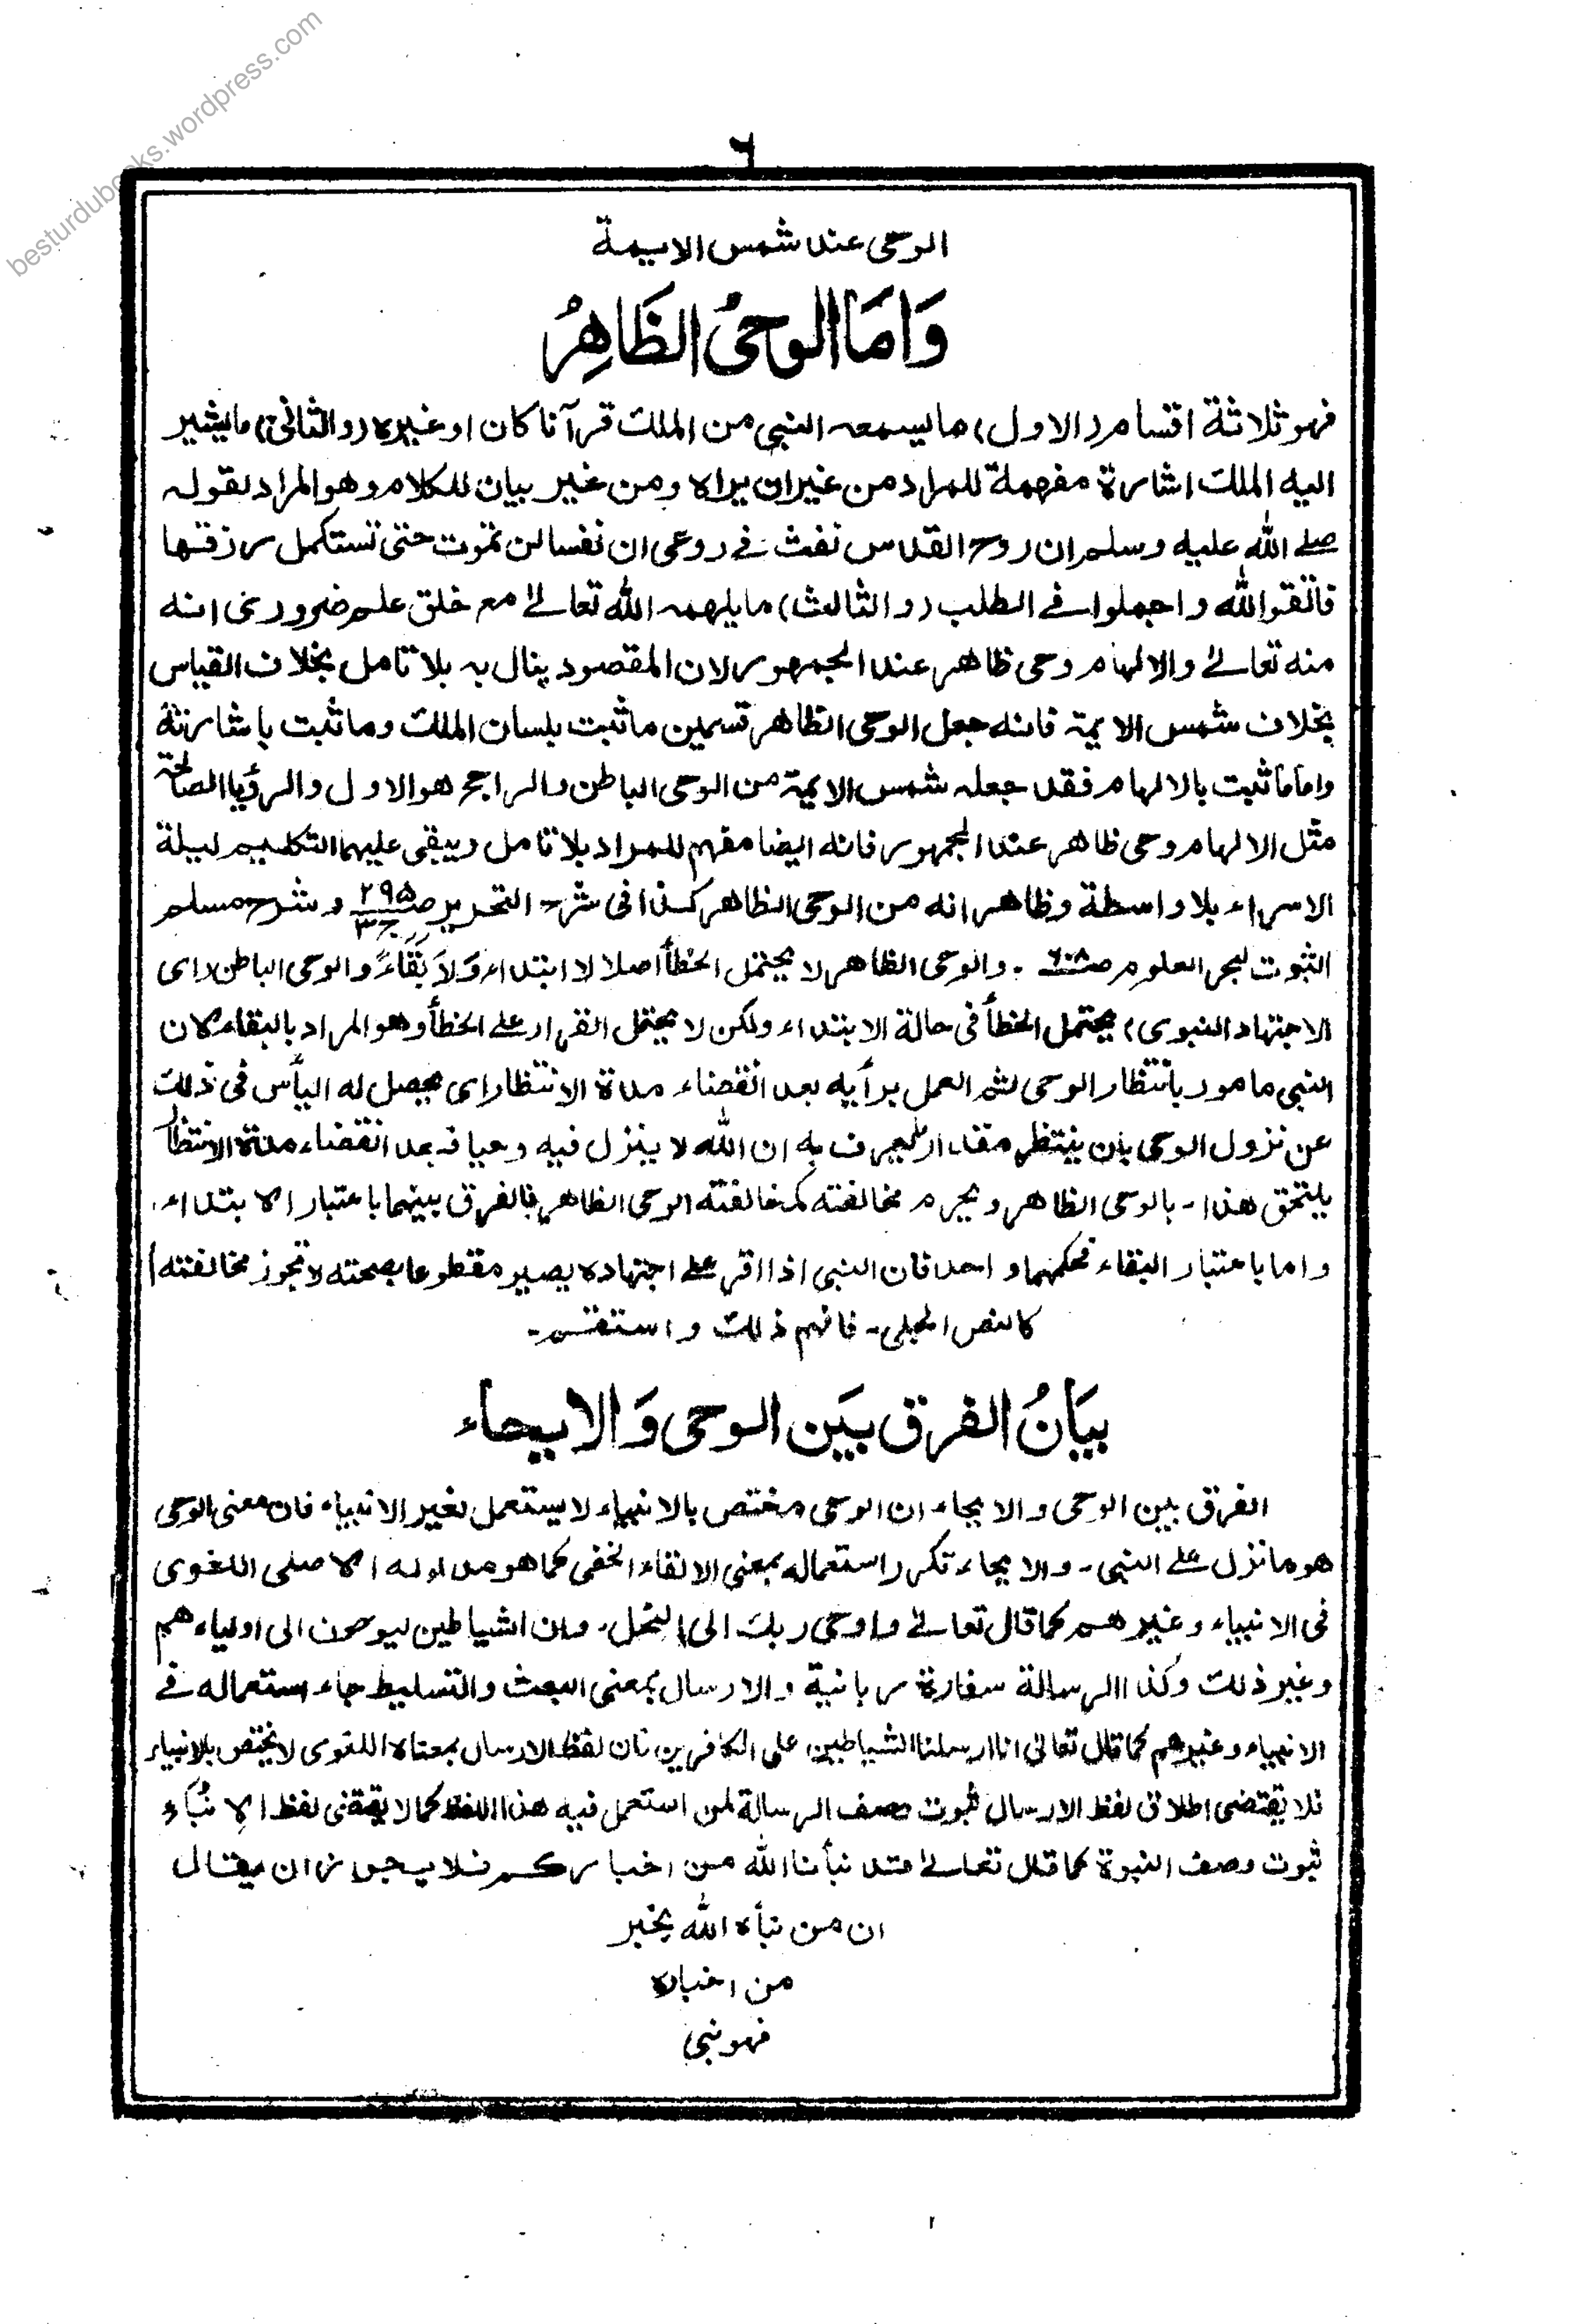 besturdubooks.wordpress.com
٦
الوحی عند شمس الایمة
وَامَا الوحیُ الظَاهِرُ
فهو ثلاثة اقسام (الاول) ما یسمعه النبی من الملک قرآنا کان او غیره (والثانی) ما یشیر
الیه الملک اشارة مفهمة للمراد من غیر ان یراه ومن غیر بیان للکلام وهو المراد لقوله
صلے الله علیه وسلم ان روح القدس نفث فے روعی ان نفسا لن تموت حتی تستکمل رزقها
فاتقوا الله واجملوا فے الطلب (والثالث) ما یلهمه الله تعالےٰ مع خلق علم ضروری انه
منه تعالےٰ والالهام وحی ظاهر عند الجمهور لان المقصود ینال به بلا تامل بخلاف القیاس
بخلاف شمس الایمة فانه جعل الوحی الظاهر قسمین ما ثبت بلسان الملک وما ثبت باشارته
واما ما ثبت بالالهام فقد جعله شمس الایمة من الوحی الباطن والراجح هو الاول والرؤیا الصالحة
مثل الالهام وحی ظاهر عند الجمهور فانه ایضا مفهم للمراد بلا تامل ویبقی علیهما التکلیم لیلة
الاسراء بلا واسطة وظاهر انه من الوحی الظاهر کذا فی شرح التحریر ص۲۹۵ ج۳ وشرح مسلم
الثبوت لبحر العلوم ص . والوحی الظاهر لا یحتمل الخطأ اصلا لا ابتداء وَلاَ بَقَاءً والوحی الباطن (ای
الاجتهاد النبوی) یحتمل الخطأ فی حالة الابتداء ولکن لا یحتمل القرار علے الخطأ وهو المراد بالبقاء کان
النبی مامور بانتظار الوحی ثم العمل برأیه بعد انقضاء مدة الانتظار ای یحصل له الیأس فی ذلک
عن نزول الوحی بان ینتظر مقدار ما یعرف به ان الله لا ینزل فیه وحیا فبعد انقضاء مدة الانتظار
یلتحق هذا - بالوحی الظاهر ویحرم مخالفته کمخالفته الوحی الظاهر فالفرق بینهما باعتبار الابتداء
واما باعتبار البقاء فحکمهما واحد فان النبی اذا اقر علے اجتهاده یصیر مقطوعا بصحته لا تجوز مخالفته
کالنص الجلی - فافهم ذلک واستقم -
بیَانُ الفرق بیَن الوحی وَالایحاء
الفرق بین الوحی والایحاء ان الوحی مختص بالانبیاء لا یستعمل لغیر الانبیاء فان معنی الوحی
هو ما نزل علے النبی - والایحاء تکرر استعماله بمعنی الالقاء الخفی کما هو مدلوله الاصلی اللغوی
فی الانبیاء وغیرهم کما قال تعالےٰ واوحی ربک الی النحل - وان الشیاطین لیوحون الی اولیاءهم
وغیر ذلک وکذا الرسالة سفارة ربانیة والارسال بمعنی البعث والتسلیط جاء استعماله فے
الانبیاء وغیرهم کما قال تعالی انا ارسلنا الشیاطین علی الکافرین فان لفظ الارسال بمعناه اللغوی لا یختص بالانبیاء
فلا یقتضی اطلاق لفظ الارسال ثبوت وصف الرسالة لمن استعمل فیه هذا اللفظ کما لا یقتضی لفظ الاِنبَاء
ثبوت وصف النبوة کما قال تعالےٰ قد نبأنا الله من اخبارکم فلا یجوز ان یقال
ان من نبأه الله بخبر
من اخباره
فهو نبی